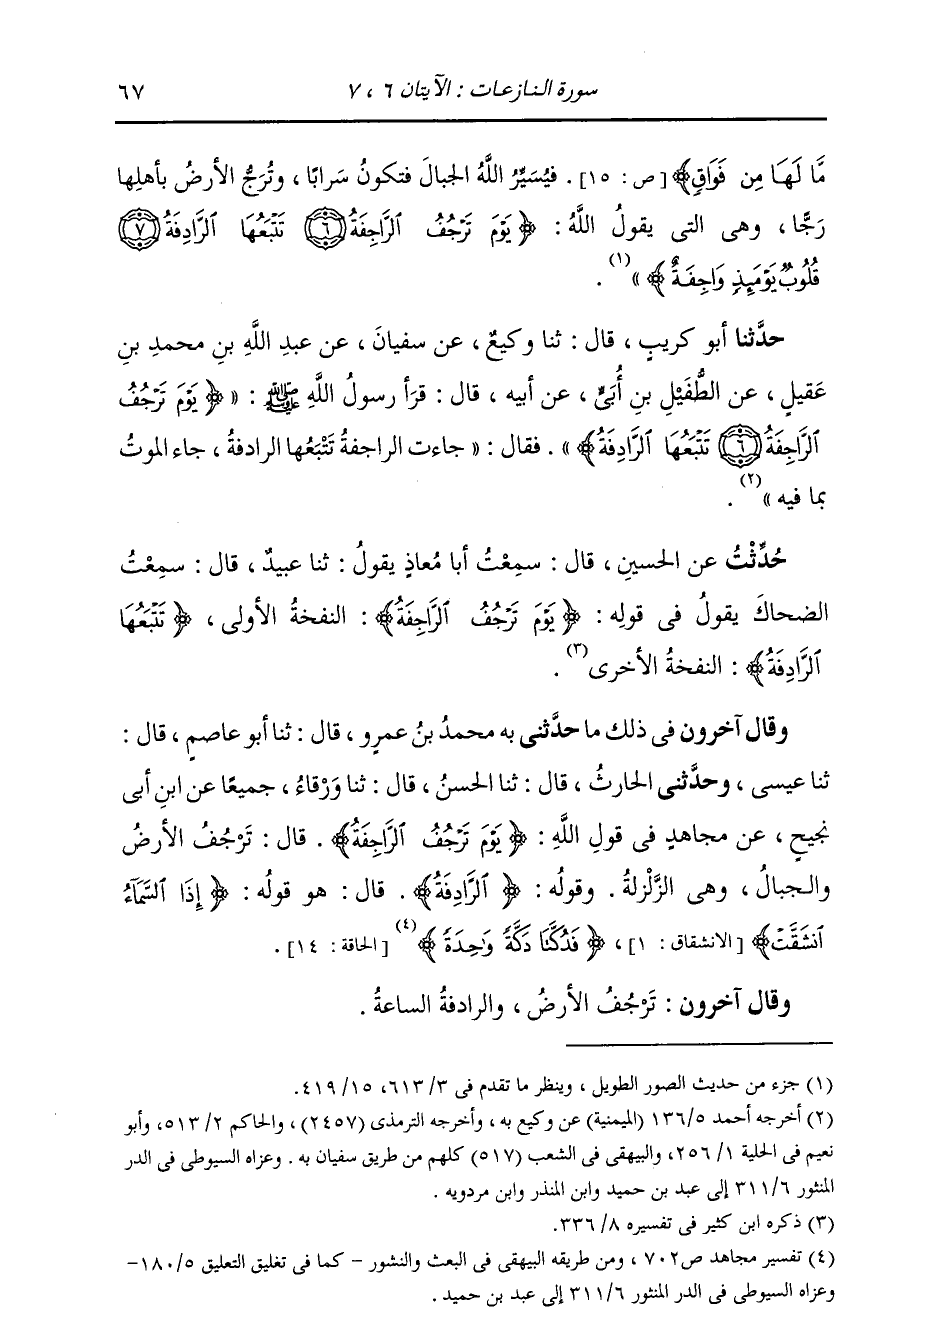 سورة النازعات : الآيتان ٦ ، ٧ ٦٧
مَّا لَهَا مِن فَوَاقٍ﴾ [ ص : ١٥ ] . فيُسَيِّرُ اللَّهُ الجبالَ فتكونُ سَرابًا ، وتُرَجُّ الأرضُ بأهلِها
رَجًّا ، وهى التى يقولُ اللَّهُ : ﴿ يَوْمَ تَرْجُفُ ٱلرَّاجِفَةُ (٦) تَتْبَعُهَا ٱلرَّادِفَةُ (٧)
قُلُوبٌ يَوْمَئِذٍ وَاجِفَةٌ ﴾ »(١) .
حدَّثنا أبو كريبٍ ، قال : ثنا وكيعٌ ، عن سفيانَ ، عن عبدِ اللَّهِ بنِ محمدِ بنِ
عَقيلٍ ، عن الطُّفَيْلِ بنِ أُبَىٍّ ، عن أبيه ، قال : قرَأ رسولُ اللَّهِ ﷺ : « ﴿ يَوْمَ تَرْجُفُ
ٱلرَّاجِفَةُ (٦) تَتْبَعُهَا ٱلرَّادِفَةُ﴾ » . فقال : « جاءت الراجفةُ تَتْبَعُها الرادفةُ ، جاء الموتُ
بما فيه »(٢) .
حُدِّثْتُ عن الحسينِ ، قال : سمِعْتُ أبا مُعاذٍ يقولُ : ثنا عبيدٌ ، قال : سمِعْتُ
الضحاكَ يقولُ فى قولِه : ﴿ يَوْمَ تَرْجُفُ ٱلرَّاجِفَةُ﴾ : النفخةُ الأولى ، ﴿ تَتْبَعُهَا
ٱلرَّادِفَةُ﴾ : النفخةُ الأخرى(٣) .
وقال آخرون فى ذلك ما حدَّثنى به محمدُ بنُ عمرٍو ، قال : ثنا أبو عاصمٍ ، قال :
ثنا عيسى ، وحدَّثنى الحارثُ ، قال : ثنا الحسنُ ، قال : ثنا وَرْقاءُ ، جميعًا عن ابنِ أبى
نجيحٍ ، عن مجاهدٍ فى قولِ اللَّهِ : ﴿ يَوْمَ تَرْجُفُ ٱلرَّاجِفَةُ﴾ . قال : تَرْجُفُ الأرضُ
والجبالُ ، وهى الزَّلْزلةُ . وقولُه : ﴿ ٱلرَّادِفَةُ﴾ . قال : هو قولُه : ﴿ إِذَا ٱلسَّمَآءُ
ٱنشَقَّتْ﴾ [ الانشقاق : ١ ] ، ﴿ فَدُكَّتَا دَكَّةً وَٰحِدَةً ﴾(٤) [ الحاقة : ١٤ ] .
وقال آخرون : تَرْجُفُ الأرضُ ، والرادفةُ الساعةُ .
(١) جزء من حديث الصور الطويل ، وينظر ما تقدم فى ٣/ ٦١٣، ١٥/ ٤١٩.
(٢) أخرجه أحمد ٥/ ١٣٦ (الميمنية) عن وكيع به ، وأخرجه الترمذى (٢٤٥٧) ، والحاكم ٢/ ٥١٣، وأبو
نعيم فى الحلية ١/ ٢٥٦، والبيهقى فى الشعب (٥١٧) كلهم من طريق سفيان به . وعزاه السيوطى فى الدر
المنثور ٦/ ٣١١ إلى عبد بن حميد وابن المنذر وابن مردويه .
(٣) ذكره ابن كثير فى تفسيره ٨/ ٣٣٦.
(٤) تفسير مجاهد ص٧٠٢ ، ومن طريقه البيهقى فى البعث والنشور - كما فى تغليق التعليق ٥/ ١٨٠-
وعزاه السيوطى فى الدر المنثور ٦/ ٣١١ إلى عبد بن حميد .